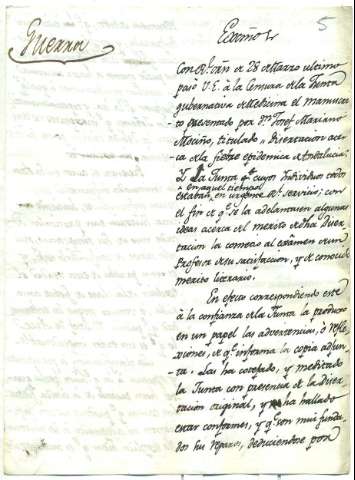 5
Guerra
Exmo. Sor.
Con Rl. órn de 28 de Marzo ultimo
pasó V.E. à la Censura de la Junta
gubernativa de Medicina el manuscri-
-to presentado por Dn. Josef Mariano
Mociño, titulado "Disertacion acer-
-ca de la fiebre epidemica de Andalucia."
Y la Junta cuyos Individuos todos
en aquel tiempo
estaban en urgente Rl. servicio; con
el fin de qe. se la adelantasen algunas
ideas acerca del merito de dha Diser-
tacion la cometio al exâmen de un
Profesor de su satisfaccion, y de conocido
merito literario.
En efecto correspondiendo este
à la confianza de la Junta la produxo
en un papel las advertencias, ò refle-
xiones, de qe. informa la copia adjun-
-ta. Las ha cotejado, y meditado
la Junta con presencia de la Diser-
tacion original, y ha hallado
estar conformes, y qe. son mui funda-
dos sus reparos, deduciendose por